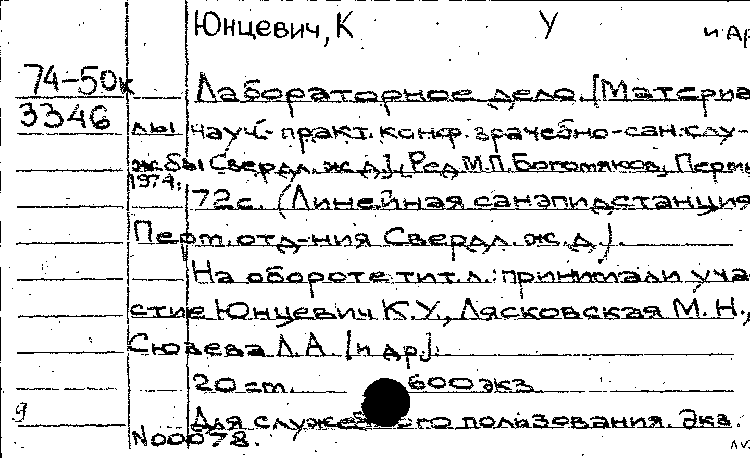 Юнцевич, К У и Др
74-50к Лабораторное дело. [Материа
3346 лы науч.-практ. конф. врачебно-сан. слу-
жбы Свердл. ж. д.]. (Ред. М.П. Богомяков, Пермь
1974.
72с. (Линейная санэпидстанция
Перм. отд-ния Свердл. ж. д.).
На обороте тит. л.: принимали уча
стие Юнцевич К.У., Лясковская М.Н.,
Сюзева Л.А. [и др].
20 ст. 600 экз
g Для служебного пользования. Экз.
N00078.